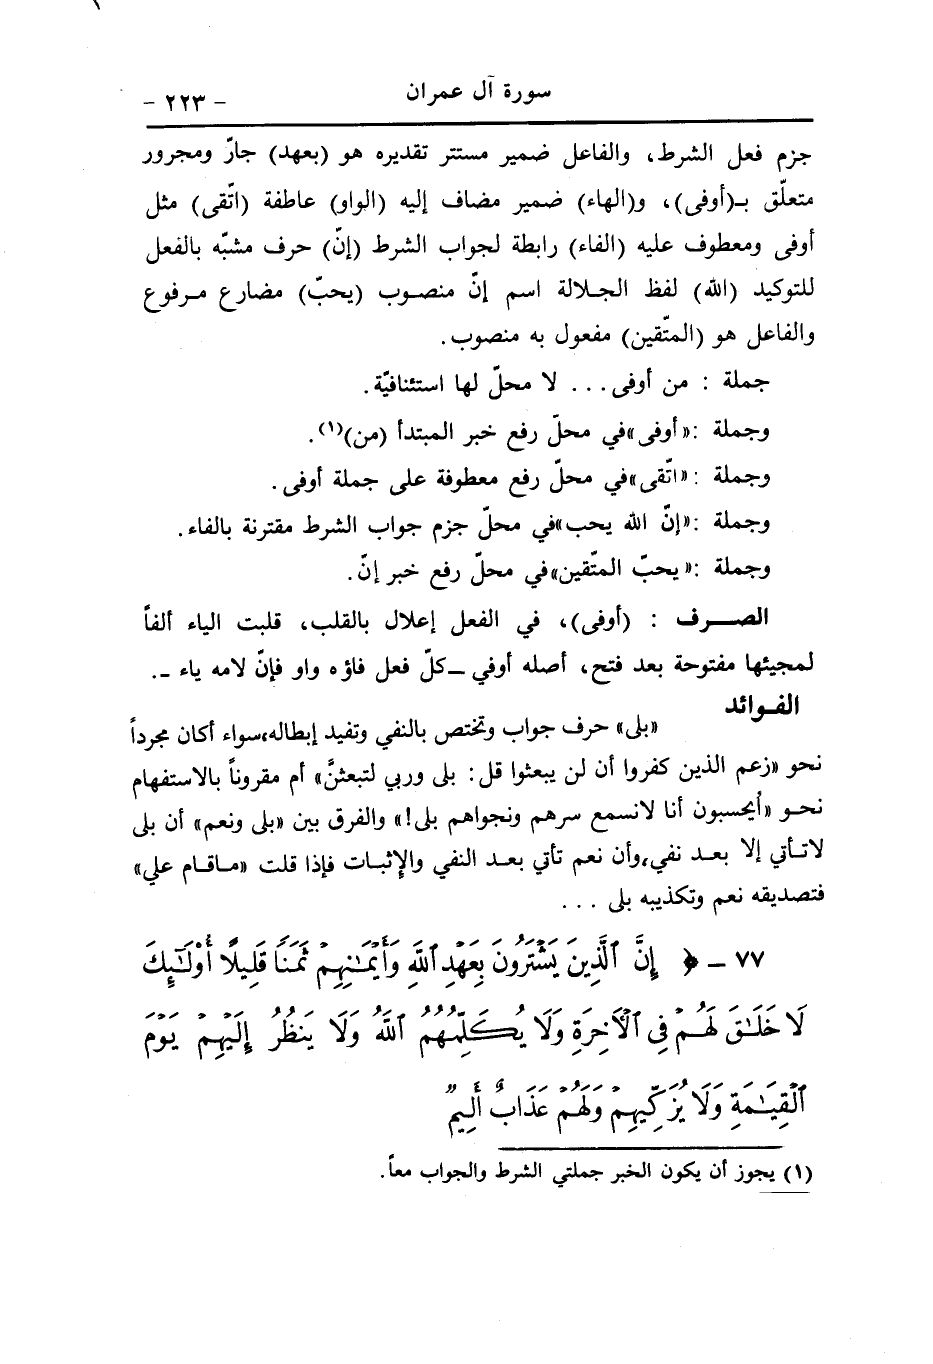 سورة آل عمران
- ٢٢٣ -
جزم فعل الشرط، والفاعل ضمير مستتر تقديره هو (بعهد) جارّ ومجرور
متعلّق بـ(أوفى)، و(الهاء) ضمير مضاف إليه (الواو) عاطفة (اتّقى) مثل
أوفى ومعطوف عليه (الفاء) رابطة لجواب الشرط (إنّ) حرف مشبّه بالفعل
للتوكيد (الله) لفظ الجلالة اسم إنّ منصوب (يحبّ) مضارع مرفوع
والفاعل هو (المتّقين) مفعول به منصوب.
جملة : من أوفى... لا محلّ لها استئنافيّة.
وجملة :«أوفى»في محلّ رفع خبر المبتدأ (من)(١).
وجملة :«اتّقى»في محلّ رفع معطوفة على جملة أوفى.
وجملة :«إنّ الله يحب»في محلّ جزم جواب الشرط مقترنة بالفاء.
وجملة :«يحبّ المتّقين»في محلّ رفع خبر إنّ.
الصـــرف : (أوفى)، في الفعل إعلال بالقلب، قلبت الياء ألفاً
لمجيئها مفتوحة بعد فتح، أصله أوفي ــ كلّ فعل فاؤه واو فإنّ لامه ياء ــ.
الفـوائد
«بلى» حرف جواب وتختص بالنفي وتفيد إبطاله،سواء أكان مجرداً
نحو «زعم الذين كفروا أن لن يبعثوا قل: بلى وربي لتبعثنَّ» أم مقروناً بالاستفهام
نحو «أيحسبون أنا لانسمع سرهم ونجواهم بلى!» والفرق بين «بلى ونعم» أن بلى
لاتأتي إلا بعد نفي،وأن نعم تأتي بعد النفي والإثبات فإذا قلت «ماقام علي»
فتصديقه نعم وتكذيبه بلى ...
٧٧ ــ ﴿ إِنَّ ٱلَّذِينَ يَشْتَرُونَ بِعَهْدِ ٱللَّهِ وَأَيْمَـٰنِهِمْ ثَمَنًا قَلِيلًا أُوْلَـٰٓئِكَ
لَا خَلَـٰقَ لَهُمْ فِى ٱلْأَخِرَةِ وَلَا يُكَلِّمُهُمُ ٱللَّهُ وَلَا يَنظُرُ إِلَيْهِمْ يَوْمَ
ٱلْقِيَـٰمَةِ وَلَا يُزَكِّيهِمْ وَلَهُمْ عَذَابٌ أَلِيمٌ
(١) يجوز أن يكون الخبر جملتي الشرط والجواب معاً.